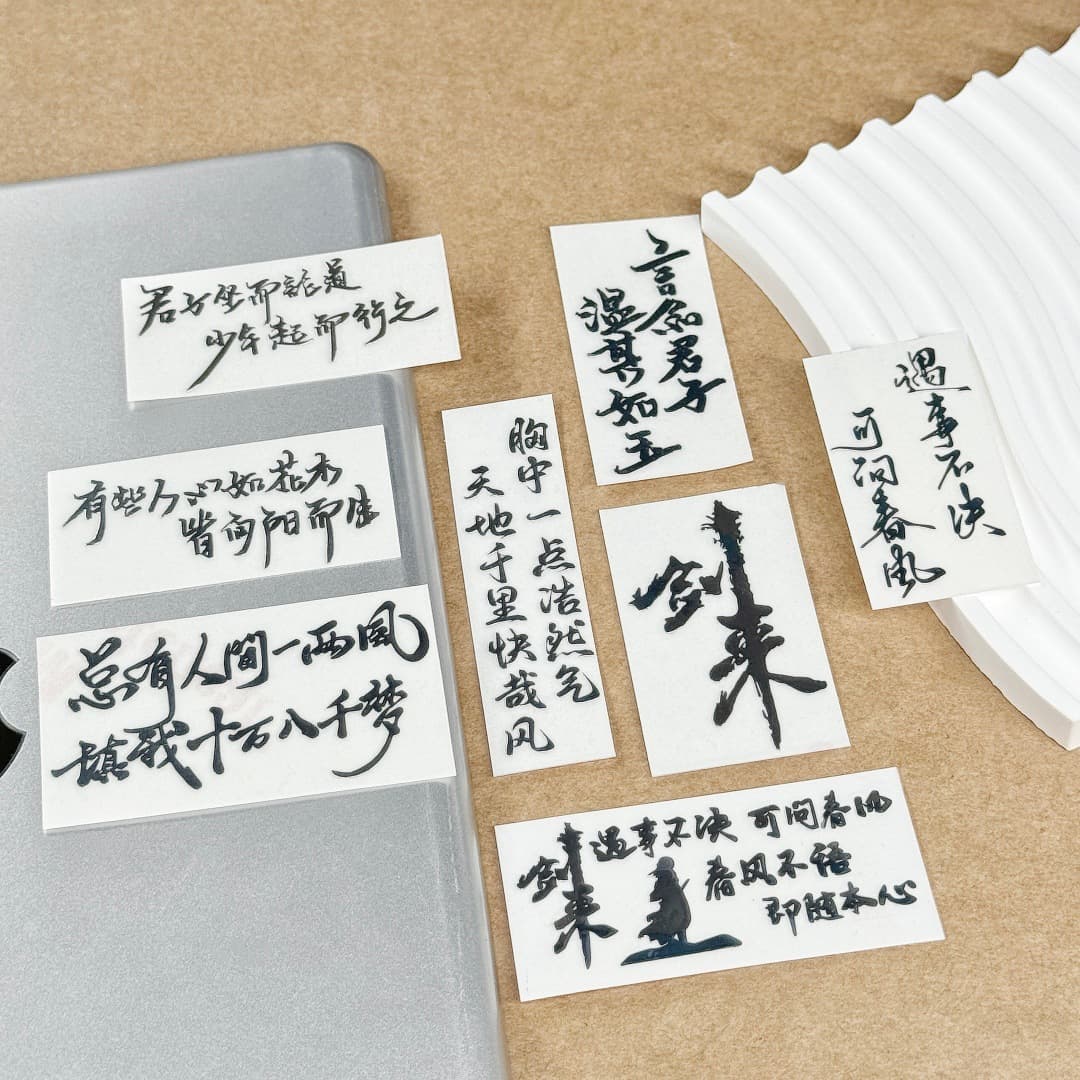 君子坐而論道
少年起而行之
有些人心如花木
皆向阳而生
总有人間一两風
填我十万八千梦
言念君子
温其如玉
胸中一点浩然气
天地千里快哉风
遇事不决
可问春風
剑来
剑来
遇事不决 可问春风
春風不语
即随本心